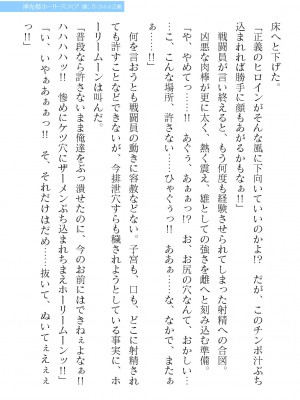 床へと下げた。
「正義のヒロインがそんな風に下向いていいのかよ!?　だが、このチンポ汁ぶち
込まれれば勝手に顔もあがるかもなぁ!!」
戦闘員が言い終えると、もう何度も経験させられてしまった射精への合図。
凶悪な肉棒が更に太く、熱く震え、雄としての強さを雌へと刻み込む準備。
「や、やめてっ……!!　あぐぅ、あぁぁっ!?　お、お尻の穴なんて、おかしい…
…こ、こんな場所、許さない……ひゃぐぅっ!!　ああぁ……な、なかで、またぁ
っ!!」
何を言おうとも戦闘員の動きに容赦などない。子宮も、口も、どこに射精され
ても許すことなどできないが、今排泄穴すらも穢されようとしている事実に、ホ
ーリームーンは叫んだ。
「普段なら許さないまま俺達をぶっ潰せたのに、今のお前にはできねぇよな!!
ハハハハッ!!　惨めにケツ穴にザーメンぶち込まれちまえホーリームーンッ!!」
「い、いやぁあぁぁっ!!　そ、それだけはだめ……抜いて、ぬいてぇえぇぇ